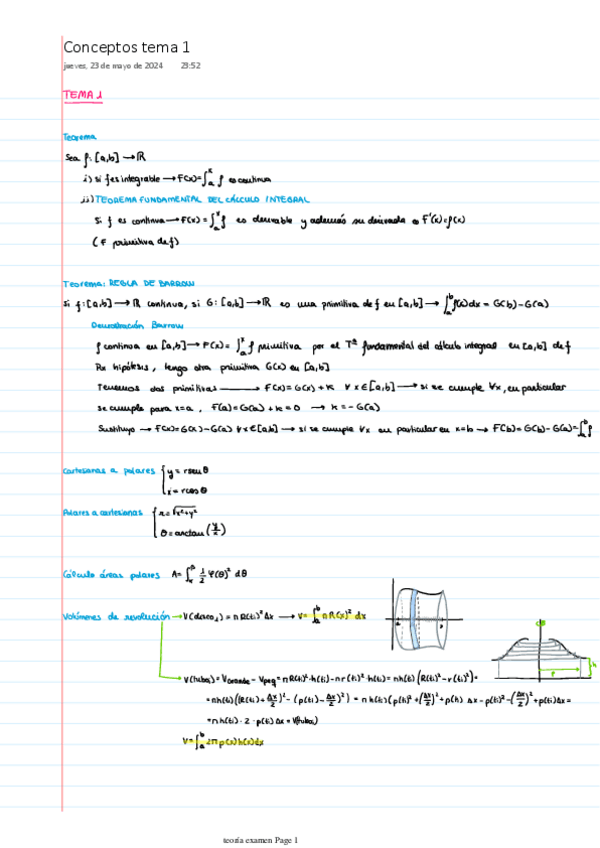 Conceptos tema 1
jueves, 23 de mayo de 2024 23:52
TEMA 1
Teorema
Sea f: [a,b] → ℝ
i) si f es integrable → F(x) = ∫ₐˣ f es continua
ii) TEOREMA FUNDAMENTAL DEL CÁLCULO INTEGRAL
Si f es continua → F(x) = ∫ₐˣ f es derivable y además su derivada es F'(x) = f(x)
(F primitiva de f)
Teorema: REGLA DE BARROW
Si f: [a,b] → ℝ continua, si G: [a,b] → ℝ es una primitiva de f en [a,b] → ∫ₐᵇ f(x)dx = G(b) - G(a)
Demostración Barrow
f continua en [a,b] → F(x) = ∫ₐˣ f primitiva por el Tª fundamental del cálculo integral en [a,b] de f
Por hipótesis, tengo otra primitiva G(x) en [a,b]
Tenemos dos primitivas → F(x) = G(x) + K ∀x∈[a,b] → si se cumple ∀x, en particular
se cumple para x=a, F(a) = G(a) + K = 0 → K = -G(a)
Sustituyo → F(x) = G(x) - G(a) ∀x∈[a,b] → si se cumple ∀x en particular en x=b → F(b) = G(b) - G(a) = ∫ₐᵇ f
Cartesianas a polares { y = r senθ
x = r cosθ
Polares a cartesianas { r = √x²+y²
θ = arctan (y/x)
Cálculo áreas polares A = ∫ 1/2 φ(θ)² dθ
Volúmenes de revolución → V(disco) = π R(ti)² Δx → V = ∫ₐᵇ π R(x)² dx
V(tubo) = Vgrande - Vpeq = π R(ti)²·h(ti) - π r(ti)²·h(ti) = π h(ti) (R(ti)² - r(ti)²) =
= π h(ti) ((R(ti) + Δx/2)² - (p(ti) - Δx/2)²) = π h(ti) (p(ti)² + (Δx/2)² + p(ti) Δx - p(ti)² - (Δx/2)² + p(ti) Δx =
= π h(ti) · 2 · p(ti) Δx = V(tubo)
V = ∫ₐᵇ 2π p(x) h(x) dx
a
b
r
h
teoría examen Page 1